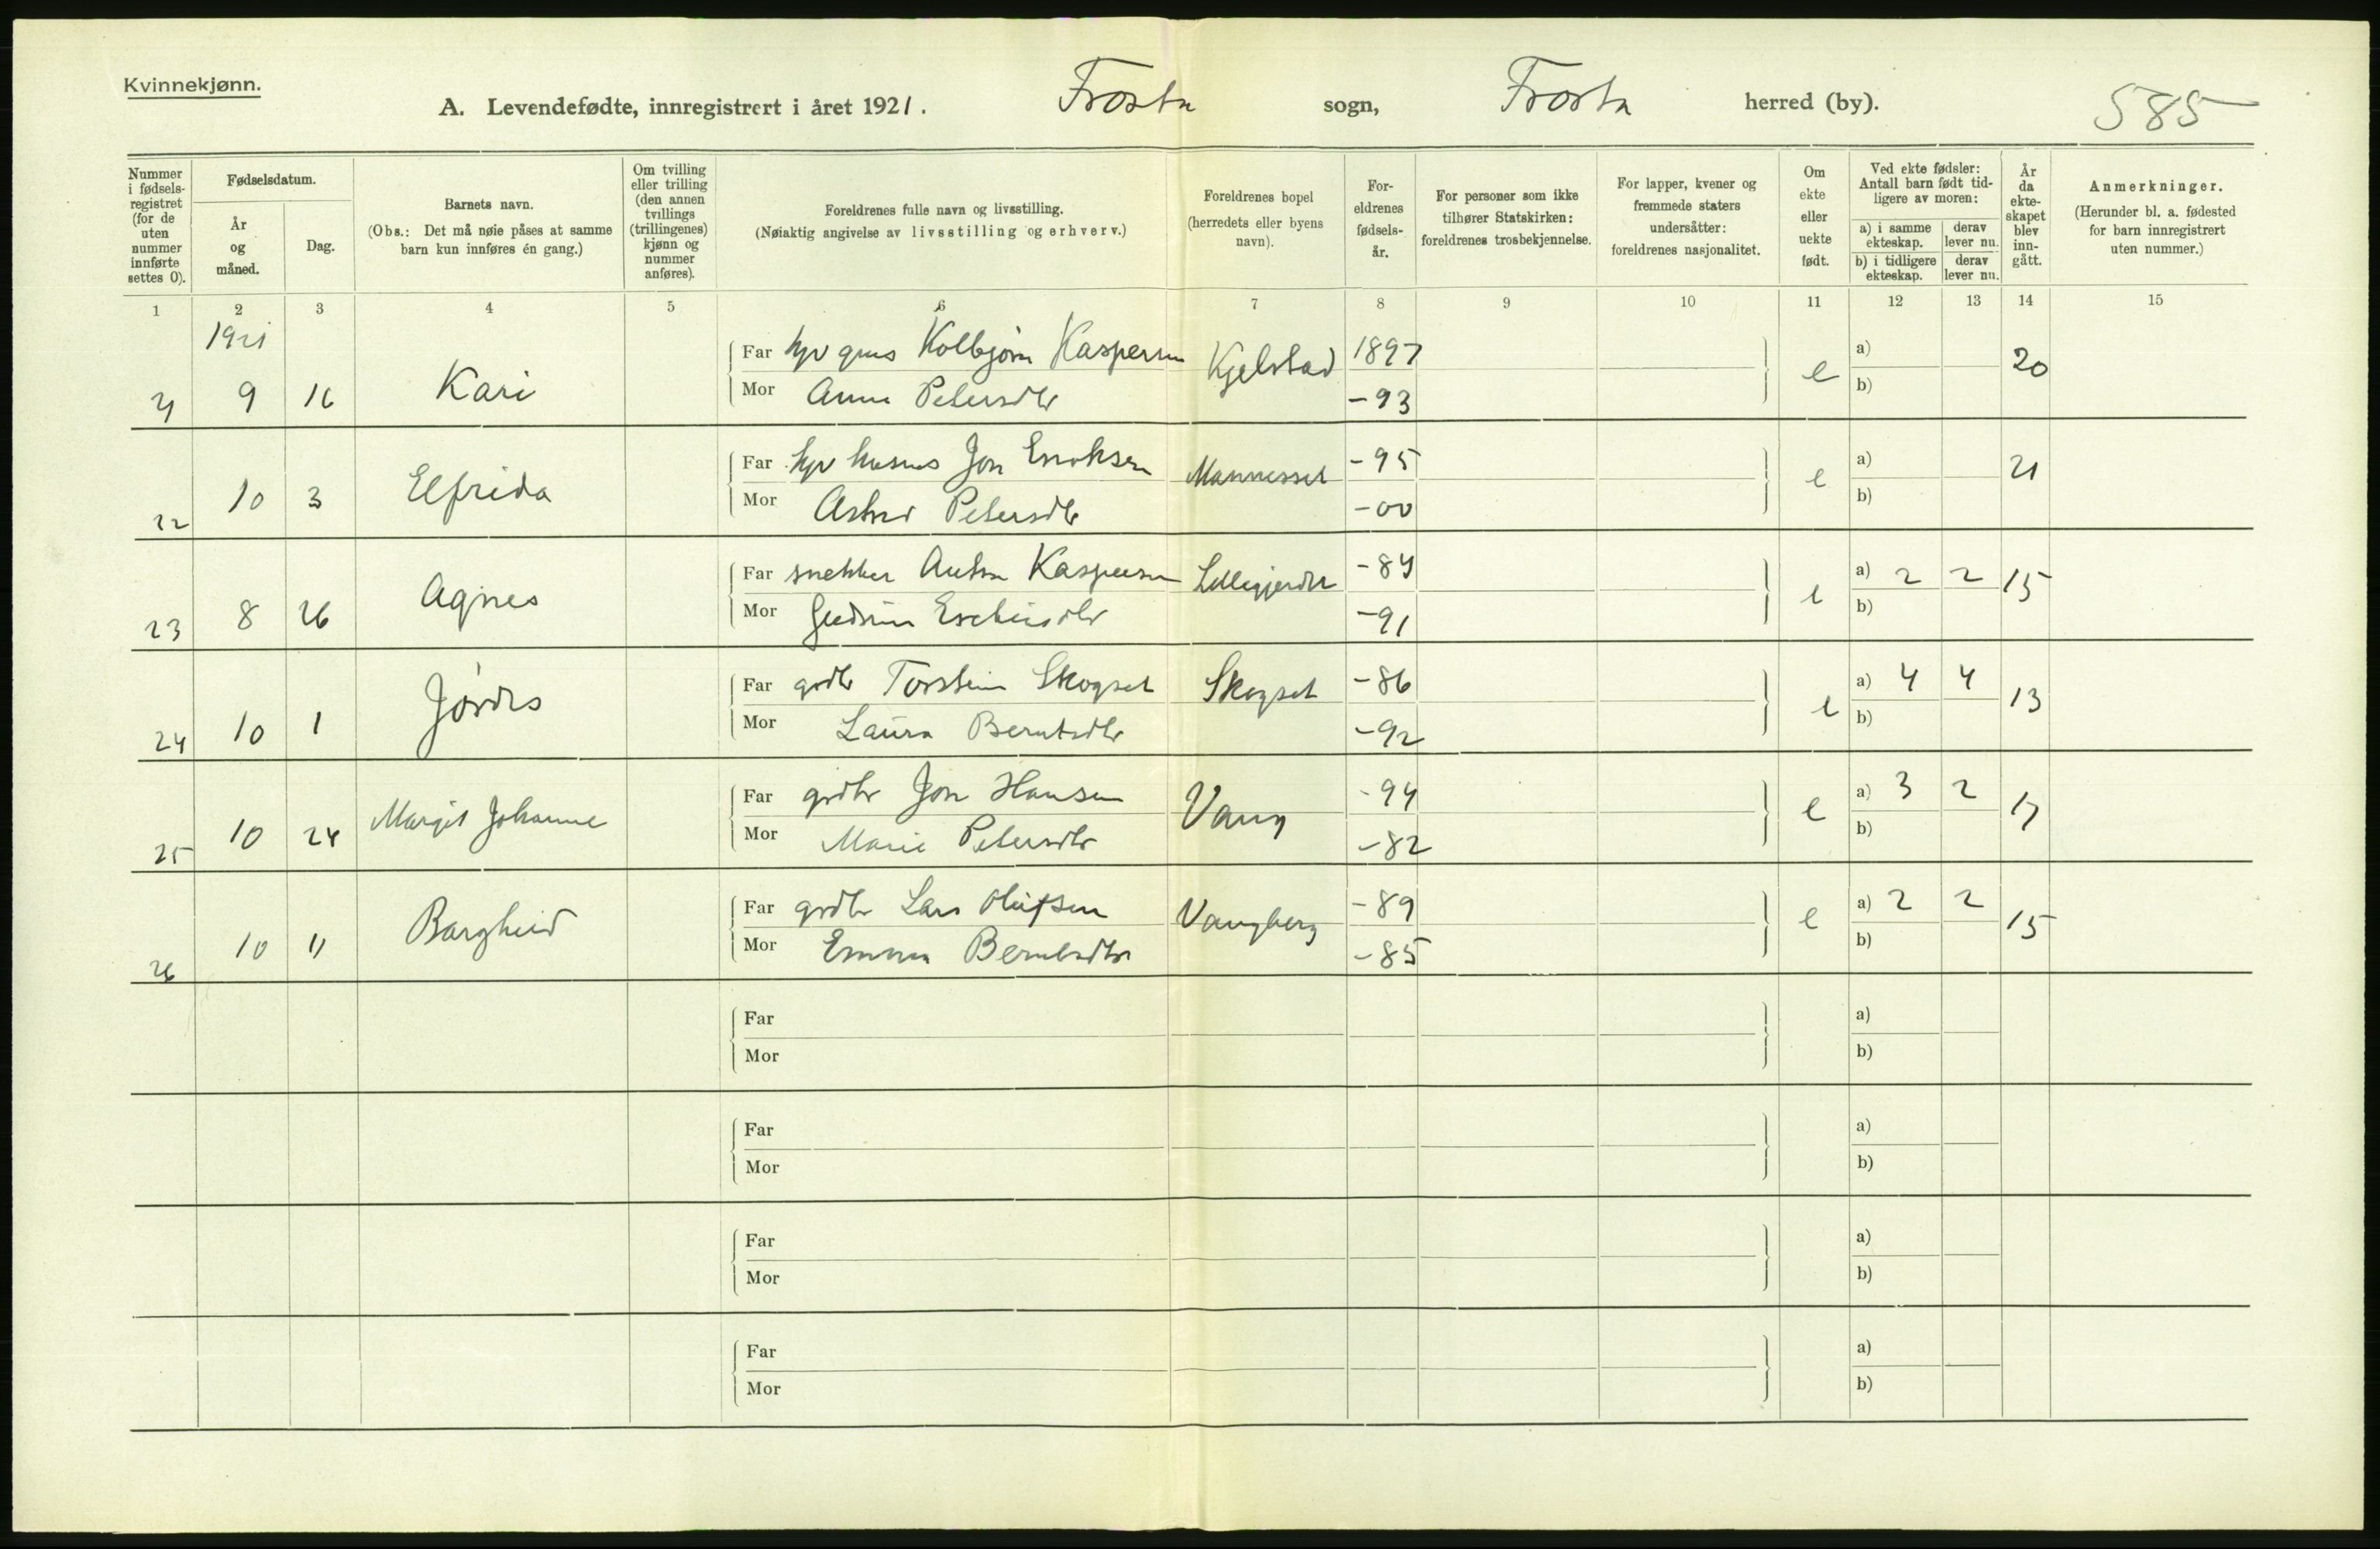 Kvinnekjønn.
A. Levendefødte, innregistrert i året 1921. Frosta sogn, Frosta herred (by). 585
Nummer i fødsels-registret (for de uten nummer innførte settes 0).
Fødselsdatum.
År og måned.
Dag.
Barnets navn.
(Obs.: Det må nøie påses at samme barn kun innføres én gang.)
Om tvilling eller trilling (den annen tvillings (trillingenes) kjønn og nummer anføres).
Foreldrenes fulle navn og livsstilling.
(Nøiaktig angivelse av livsstilling og erhverv.)
Foreldrenes bopel (herredets eller byens navn).
For-eldrenes fødsels-år.
For personer som ikke tilhører Statskirken: foreldrenes trosbekjennelse.
For lapper, kvener og fremmede staters undersåtter: foreldrenes nasjonalitet.
Om ekte eller uekte født.
Ved ekte fødsler: Antall barn født tid-ligere av moren:
a) i samme ekteskap.
derav lever nu.
b) i tidligere ekteskap.
derav lever nu.
År da ekte-skapet blev inn-gått.
Anmerkninger.
(Herunder bl. a. fødested for barn innregistrert uten nummer.)
1 2 3 4 5 6 7 8 9 10 11 12 13 14 15
1921
Far Kolbjørn Kaspersen Kjelstad 1897 a)
21 9 16 Kari e 20
Mor Anna Petersdtr -93 b)
Far Jon Eriksen -95 a)
22 10 3 Elfrida e 21
Mor Astrid Petersdtr -00 b)
Far snekker Anton Kaspersen Lillegjerdet -84 a) 2 2
23 8 26 Agnes e 15
Mor Gudrun -91 b)
Far grdbr Torstein Skogset Skogset -86 a) 4 4
24 10 1 Jørdis e 13
Mor Laura Berntsdtr -92 b)
Far grdbr Jon Hansen Vang -94 a) 3 2
25 10 24 Margit Johanne e 17
Mor Marie Petersdtr -82 b)
Far grdbr Lars Olufsen Vangberg -89 a) 2 2
26 10 11 Borghild e 15
Mor Emma Berntsdtr -85 b)
Far a)
Mor b)
Far a)
Mor b)
Far a)
Mor b)
Far a)
Mor b)